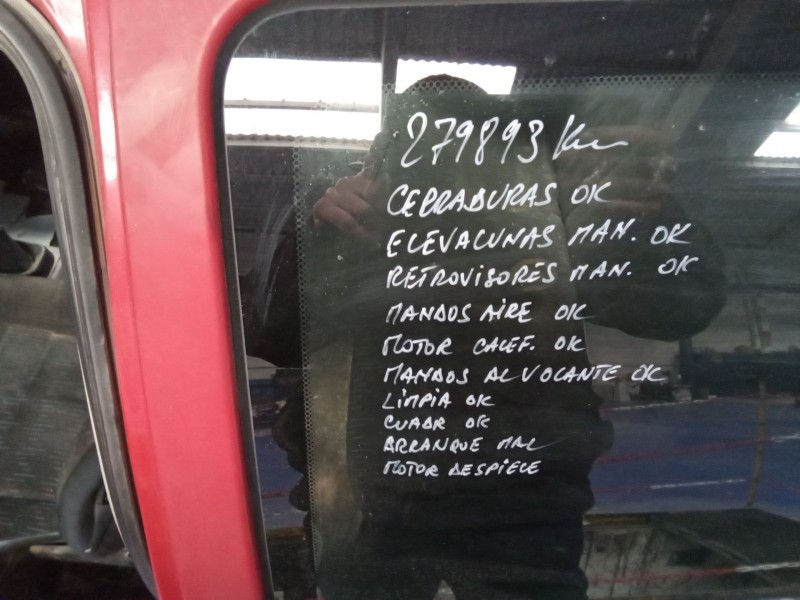 279893 Km
CERRADURAS OK
ELEVALUNAS MAN. OK
RETROVISORES MAN. OK
MANDOS AIRE OK
MOTOR CALEF. OK
MANDOS AL VOLANTE OK
LIMPIA OK
CUADR OK
ARRANQUE MAL
MOTOR DESPIECE